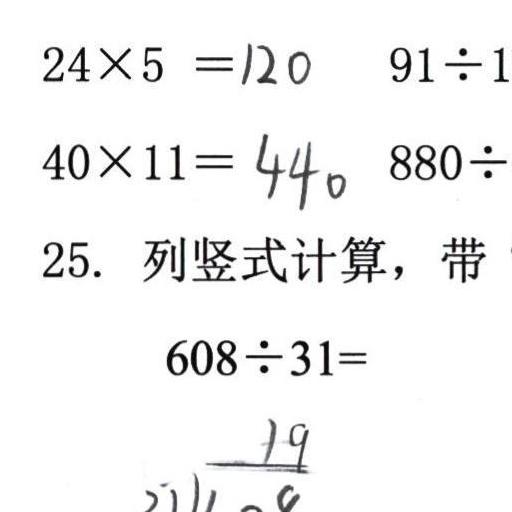 24×5 =120 91÷1
40×11= 440 880÷
25. 列竖式计算，带
608÷31=
19